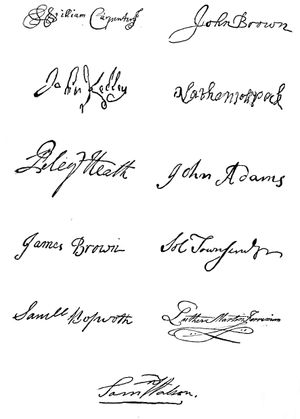 William Carpenter
John Brown
John Kelley
Peleg Heath
John Adams
James Brown
Sol Townsend
Sam.ll Kopwoth
Luther Martin
Sam Watson.